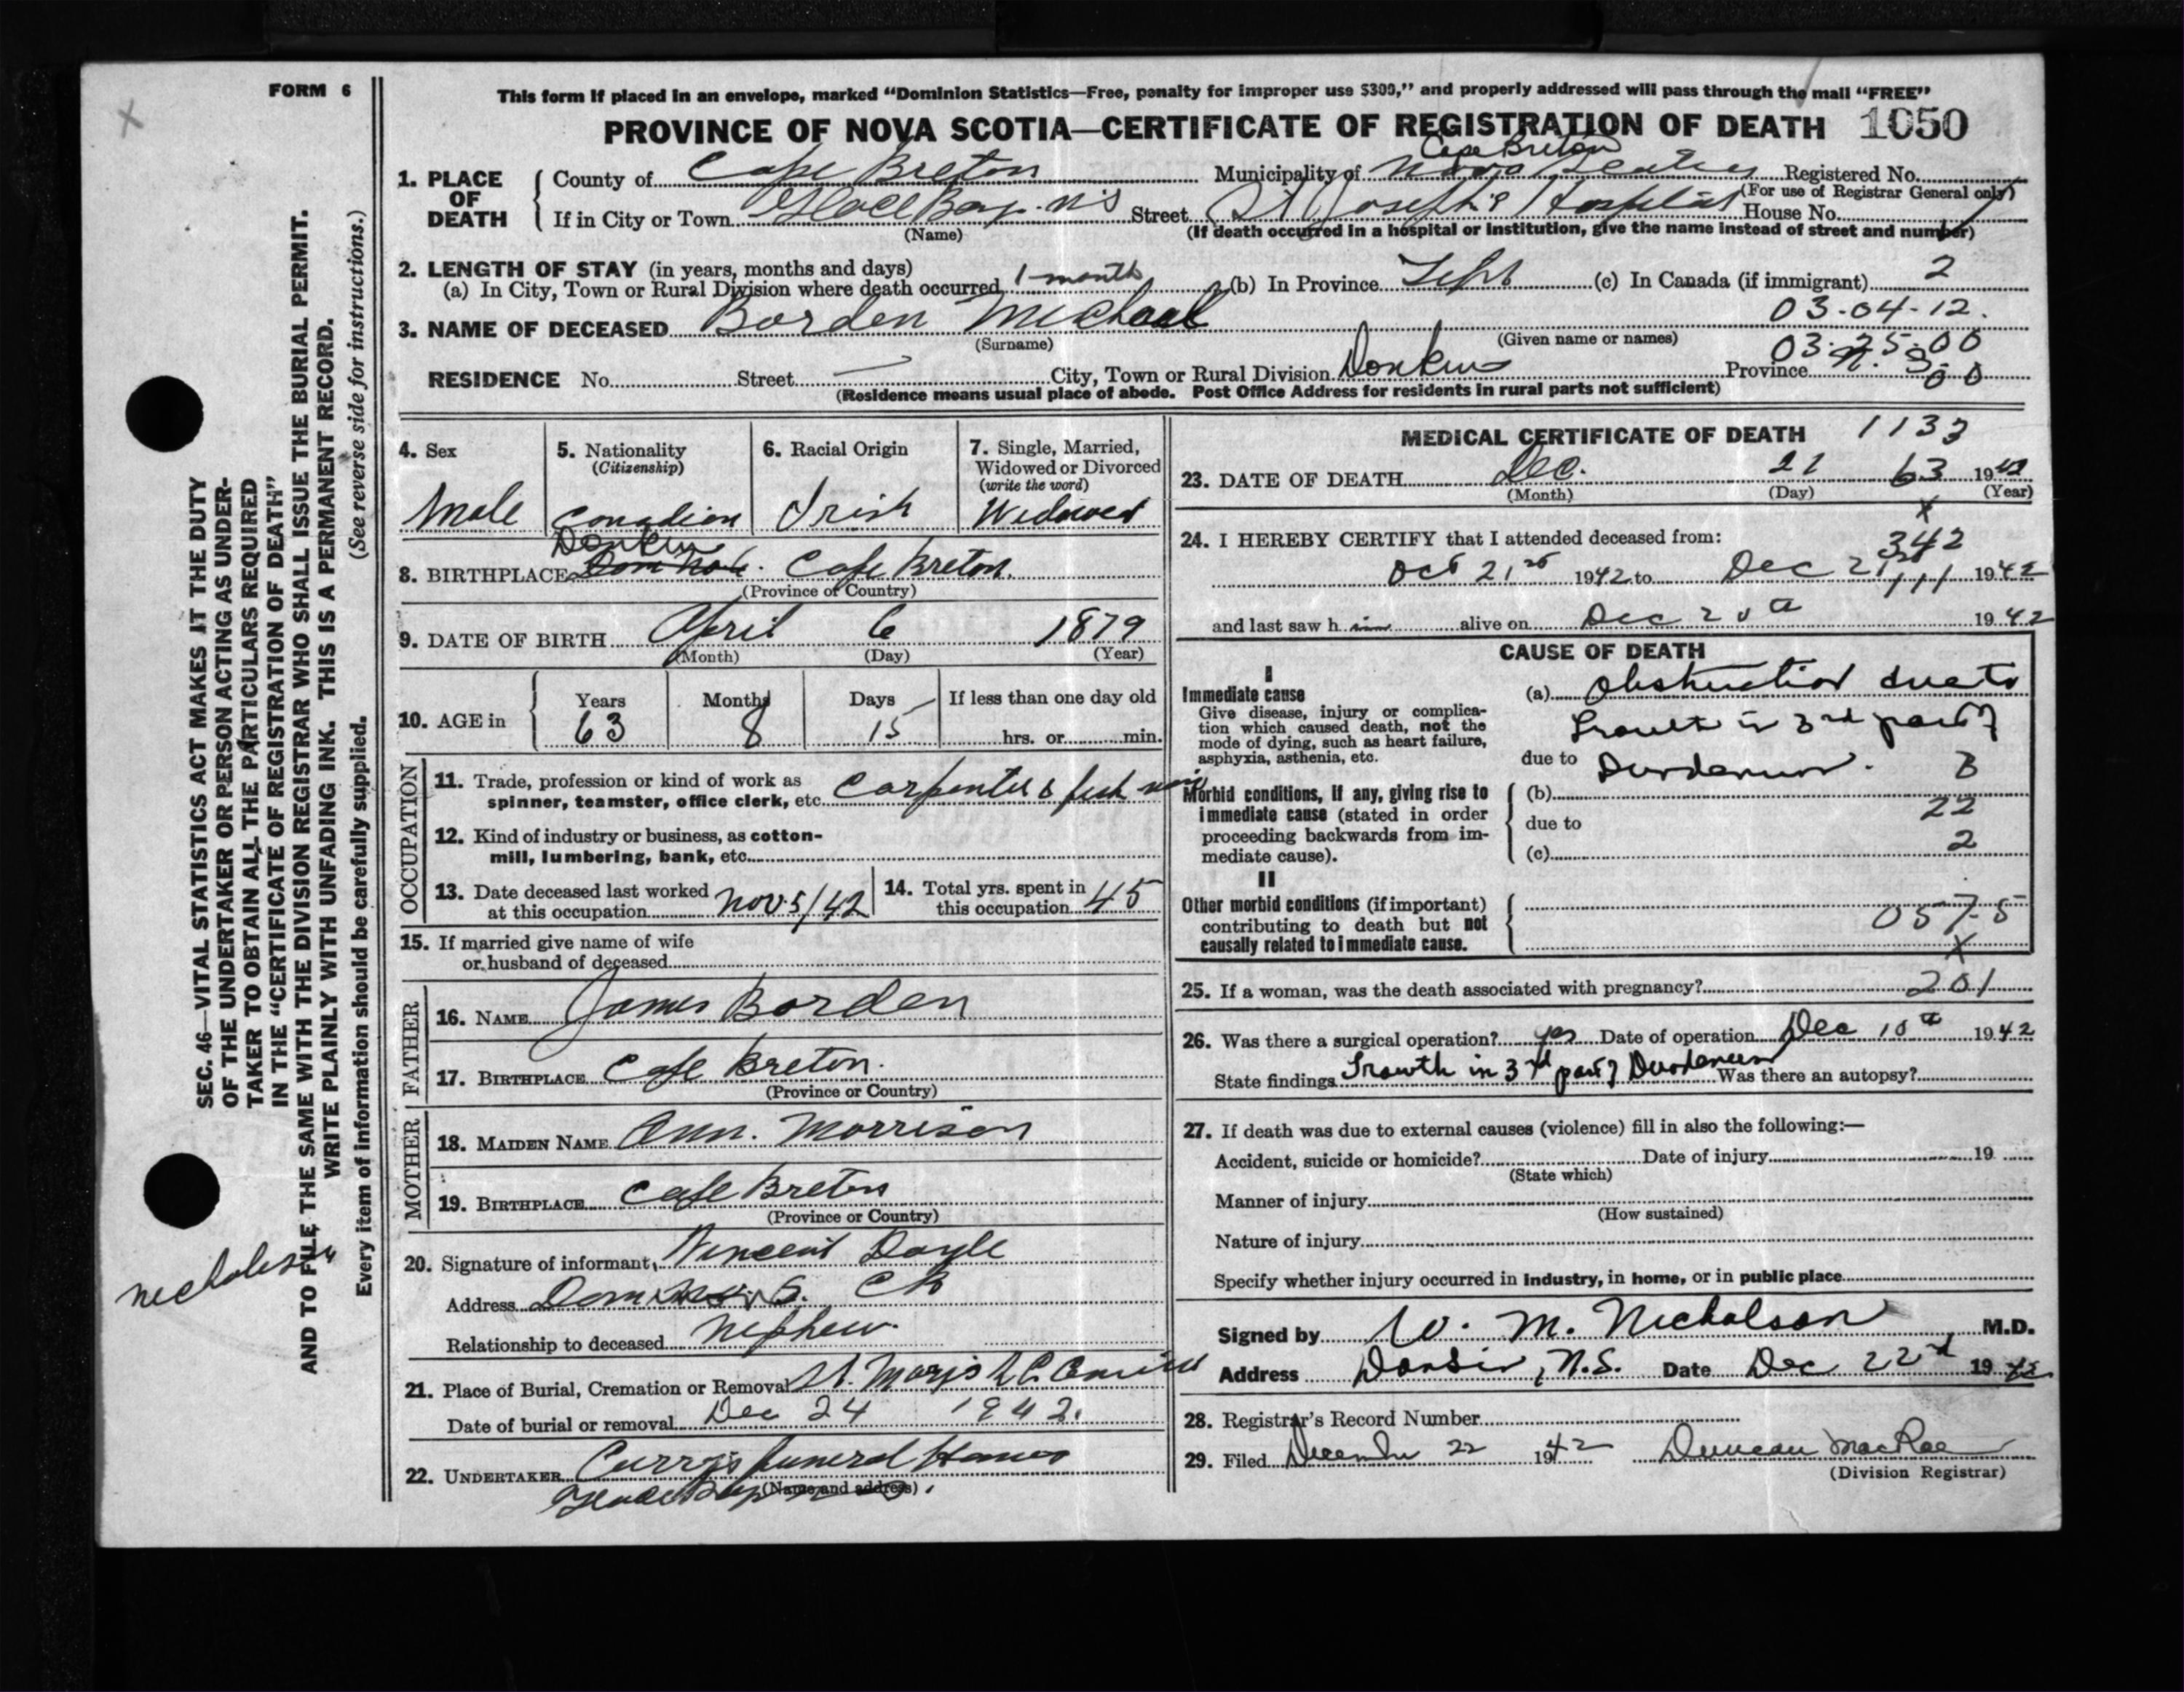 FORM 6
This form if placed in an envelope, marked “Dominion Statistics—Free, penalty for improper use $300,” and properly addressed will pass through the mail “FREE”
PROVINCE OF NOVA SCOTIA—CERTIFICATE OF REGISTRATION OF DEATH 1050
Cape Breton
1. PLACE OF DEATH County of Cape Breton Municipality of Nova Scotia Registered No.
(For use of Registrar General only)
If in City or Town Glace Bay N S Street St Joseph's Hospital House No.
(Name) (If death occurred in a hospital or institution, give the name instead of street and number)
2. LENGTH OF STAY (in years, months and days)
(a) In City, Town or Rural Division where death occurred 1 month (b) In Province (c) In Canada (if immigrant) 2
03-04-12.
3. NAME OF DECEASED Borden Michael
(Surname) (Given name or names) 03-25-00
RESIDENCE No. Street City, Town or Rural Division Donkin Province N. S. 00
(Residence means usual place of abode. Post Office Address for residents in rural parts not sufficient)
4. Sex
Male
5. Nationality
(Citizenship)
Canadian
6. Racial Origin
Irish
7. Single, Married,
Widowed or Divorced
(write the word)
Widowed
Donkin
8. BIRTHPLACE Cape Breton.
(Province or Country)
9. DATE OF BIRTH April 6 1879
(Month) (Day) (Year)
10. AGE in Years Months Days If less than one day old
63 8 15 hrs. or min.
OCCUPATION
11. Trade, profession or kind of work as
spinner, teamster, office clerk, etc. Carpenter & fish
12. Kind of industry or business, as cotton-
mill, lumbering, bank, etc.
13. Date deceased last worked
at this occupation Nov 5/42
14. Total yrs. spent in
this occupation 45
15. If married give name of wife
or husband of deceased
FATHER
16. NAME James Borden
17. BIRTHPLACE Cape Breton.
(Province or Country)
MOTHER
18. MAIDEN NAME Ann. Morrison
19. BIRTHPLACE Cape Breton
(Province or Country)
20. Signature of informant Vincent Doyle
Address C B
Relationship to deceased Nephew.
21. Place of Burial, Cremation or Removal St. Marys
Date of burial or removal Dec 24 1942.
22. UNDERTAKER Curry's funeral Home
(Name and address)
Glace Bay
MEDICAL CERTIFICATE OF DEATH 1133
23. DATE OF DEATH Dec. 21 63 1942
(Month) (Day) (Year)
x
24. I HEREBY CERTIFY that I attended deceased from: 342
Oct 21st 1942 to Dec 21st 1942
111
and last saw h im alive on Dec 20th 1942
CAUSE OF DEATH
I
Immediate cause
Give disease, injury or complica-
tion which caused death, not the
mode of dying, such as heart failure,
asphyxia, asthenia, etc.
(a) Obstruction due to
Growth in 3rd part of
due to Duodenum. B
Morbid conditions, if any, giving rise to
immediate cause (stated in order
proceeding backwards from im-
mediate cause).
(b)
22
due to
2
(c)
II
Other morbid conditions (if important)
contributing to death but not
causally related to immediate cause.
057-5
X
25. If a woman, was the death associated with pregnancy? 201
26. Was there a surgical operation? yes Date of operation Dec 10th 1942
State findings Growth in 3rd part of Duodenum Was there an autopsy?
27. If death was due to external causes (violence) fill in also the following:—
Accident, suicide or homicide? Date of injury 19
(State which)
Manner of injury
(How sustained)
Nature of injury
Specify whether injury occurred in industry, in home, or in public place
Signed by W. M. Nicholson M.D.
Address N.S. Date Dec 22nd 1942
28. Registrar's Record Number
29. Filed December 22 1942 Duncan MacRae
(Division Registrar)
SEC. 46—VITAL STATISTICS ACT MAKES IT THE DUTY
OF THE UNDERTAKER OR PERSON ACTING AS UNDER-
TAKER TO OBTAIN ALL THE PARTICULARS REQUIRED
IN THE “CERTIFICATE OF REGISTRATION OF DEATH”
AND TO FILE THE SAME WITH THE DIVISION REGISTRAR WHO SHALL ISSUE THE BURIAL PERMIT.
WRITE PLAINLY WITH UNFADING INK. THIS IS A PERMANENT RECORD.
Every item of information should be carefully supplied. (See reverse side for instructions.)
Nicholson